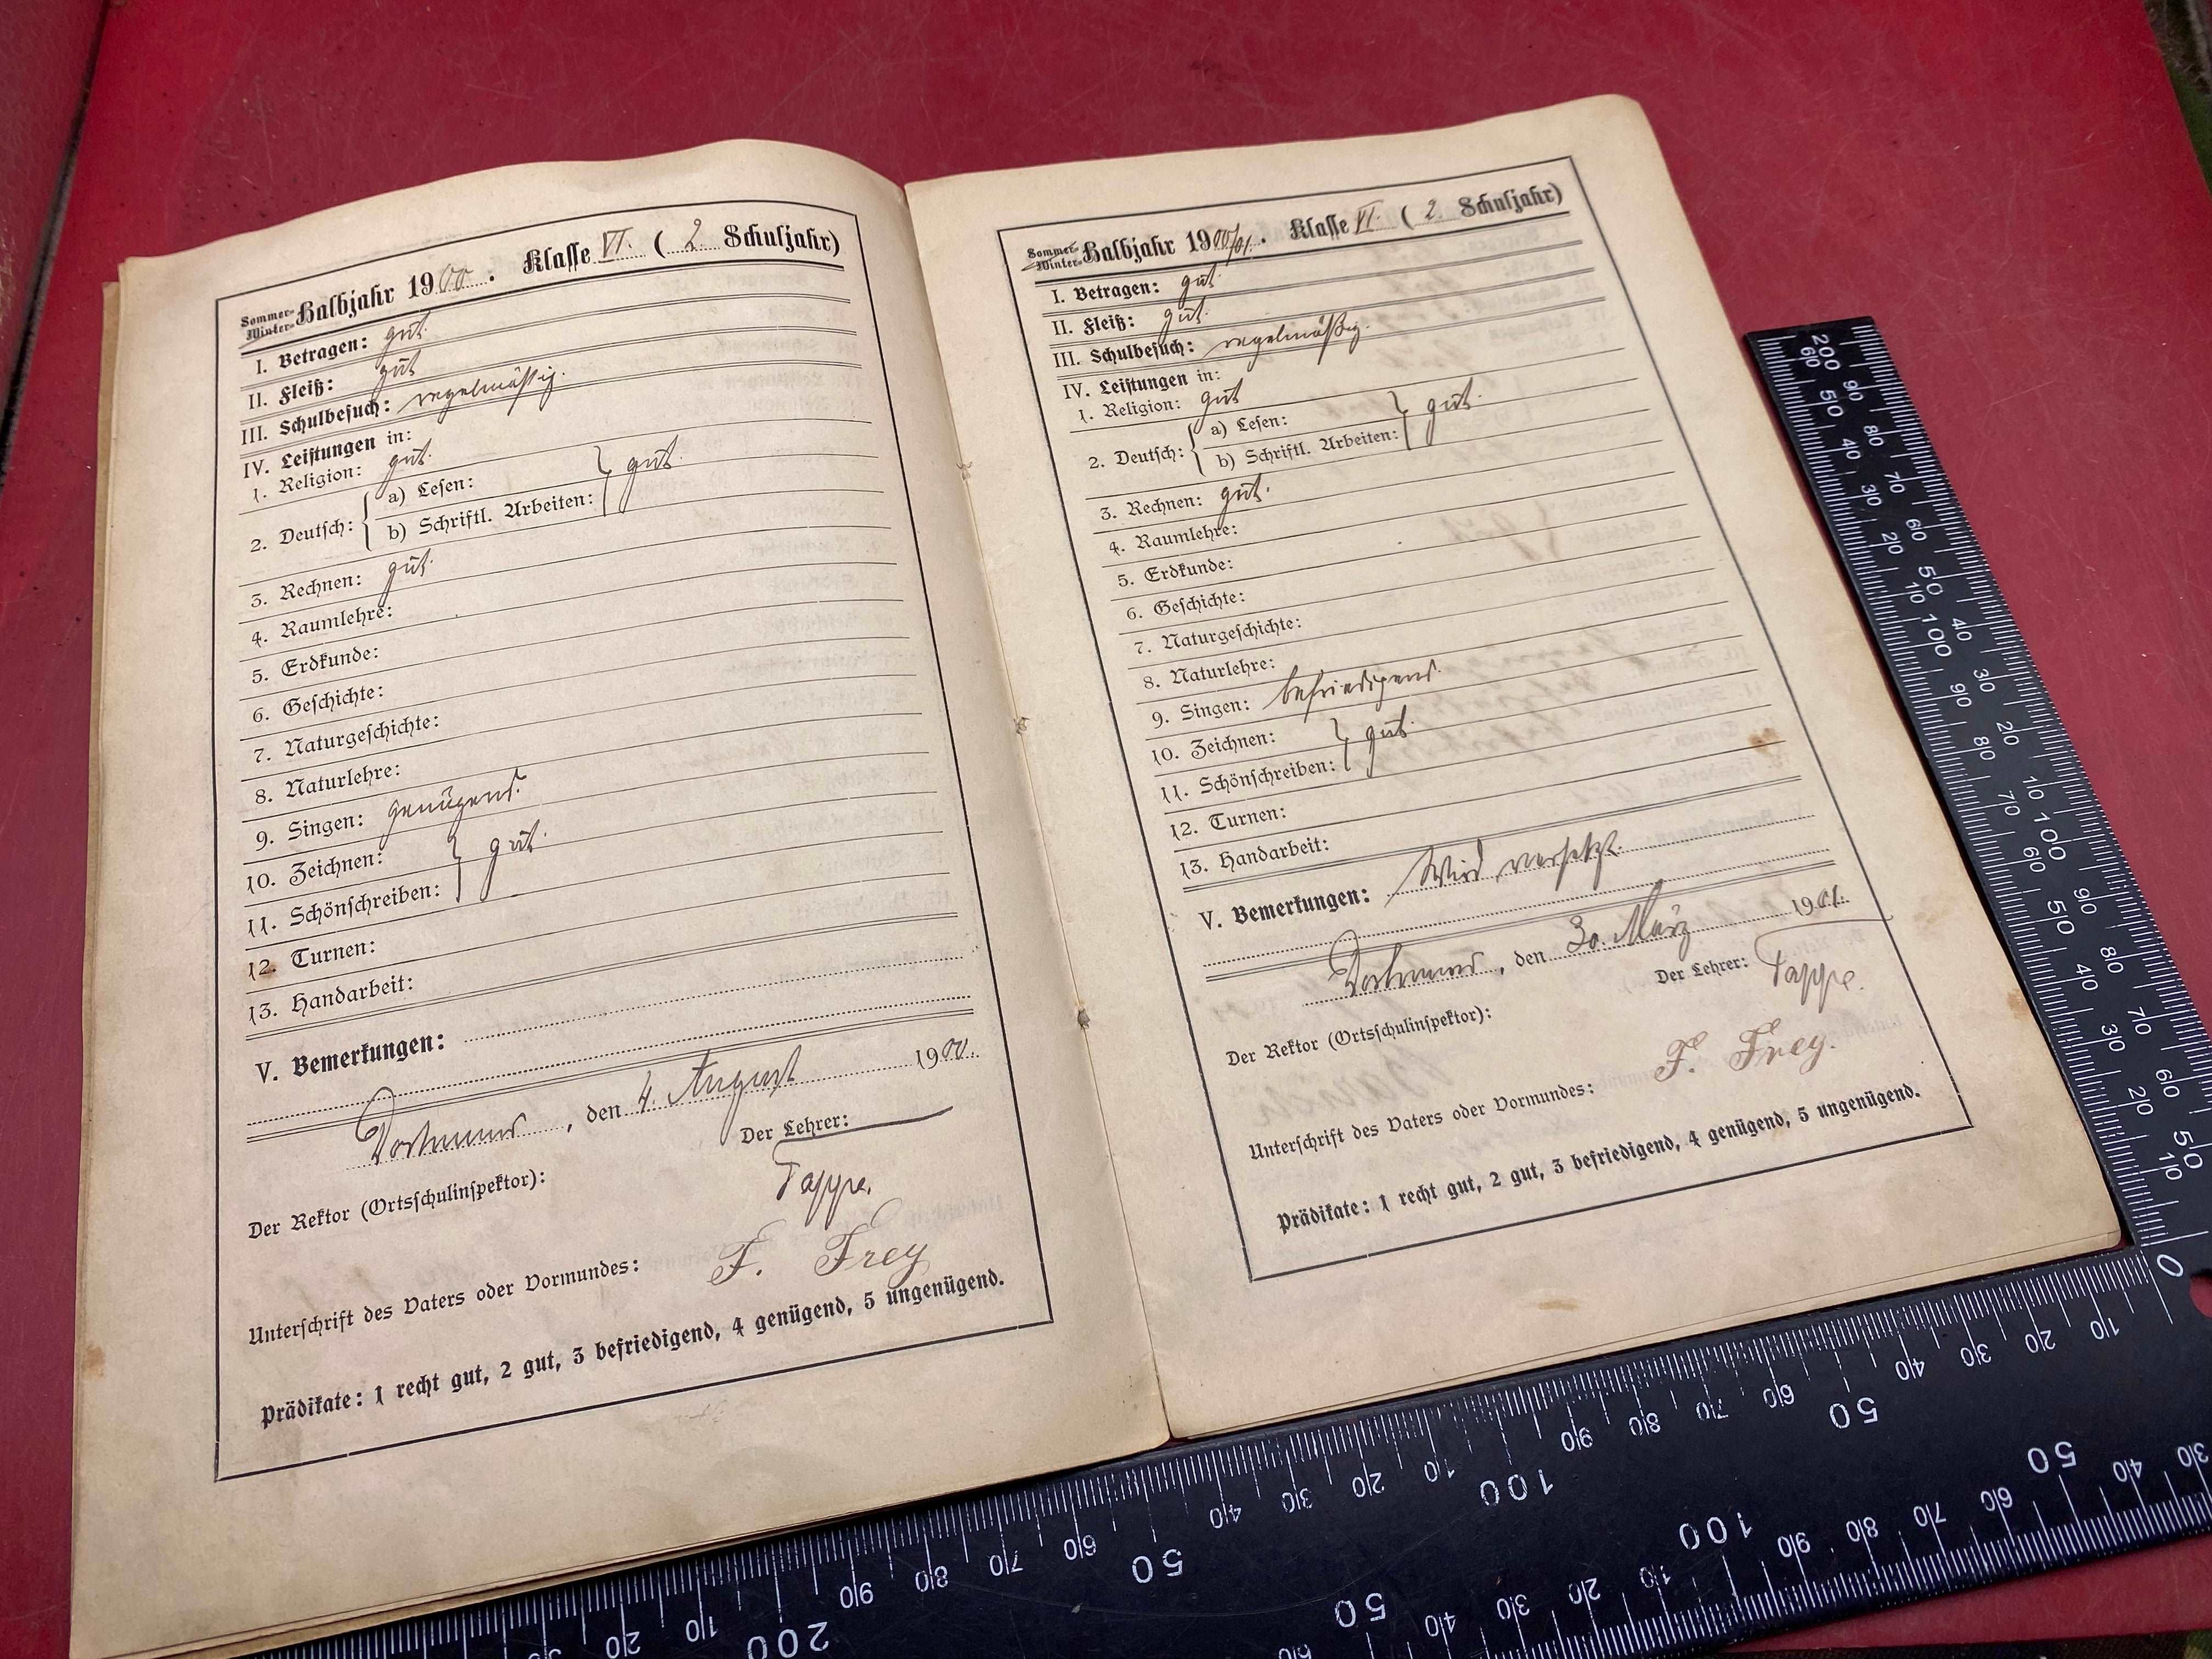 Sommer-
Winter- Halbjahr 1900. Klasse VI. ( 2 Schuljahr)
I. Betragen: gut.
II. Fleiß: gut
III. Schulbesuch: regelmäßig.
IV. Leistungen in:
1. Religion: gut.
2. Deutsch: { a) Lesen:
b) Schriftl. Arbeiten: } gut.
3. Rechnen: gut.
4. Raumlehre:
5. Erdkunde:
6. Geschichte:
7. Naturgeschichte:
8. Naturlehre:
9. Singen: genügend.
10. Zeichnen:
11. Schönschreiben: } gut.
12. Turnen:
13. Handarbeit:
V. Bemerkungen:
Dortmund, den 4. August 1900.
Der Lehrer:
Tappe.
Der Rektor (Ortsschulinspektor):
Unterschrift des Vaters oder Vormundes: F. Frey
Prädikate: 1 recht gut, 2 gut, 3 befriedigend, 4 genügend, 5 ungenügend.
Sommer-
Winter- Halbjahr 1900/01. Klasse VI. ( 2. Schuljahr)
I. Betragen: gut.
II. Fleiß: gut.
III. Schulbesuch: regelmäßig.
IV. Leistungen in:
1. Religion: gut
2. Deutsch: { a) Lesen:
b) Schriftl. Arbeiten: } gut.
3. Rechnen: gut.
4. Raumlehre:
5. Erdkunde:
6. Geschichte:
7. Naturgeschichte:
8. Naturlehre:
9. Singen: befriedigend.
10. Zeichnen:
11. Schönschreiben: } gut.
12. Turnen:
13. Handarbeit:
V. Bemerkungen: Wird versetzt.
Dortmund, den 30. März 1901.
Der Lehrer: Tappe.
Der Rektor (Ortsschulinspektor):
Unterschrift des Vaters oder Vormundes: F. Frey.
Prädikate: 1 recht gut, 2 gut, 3 befriedigend, 4 genügend, 5 ungenügend.